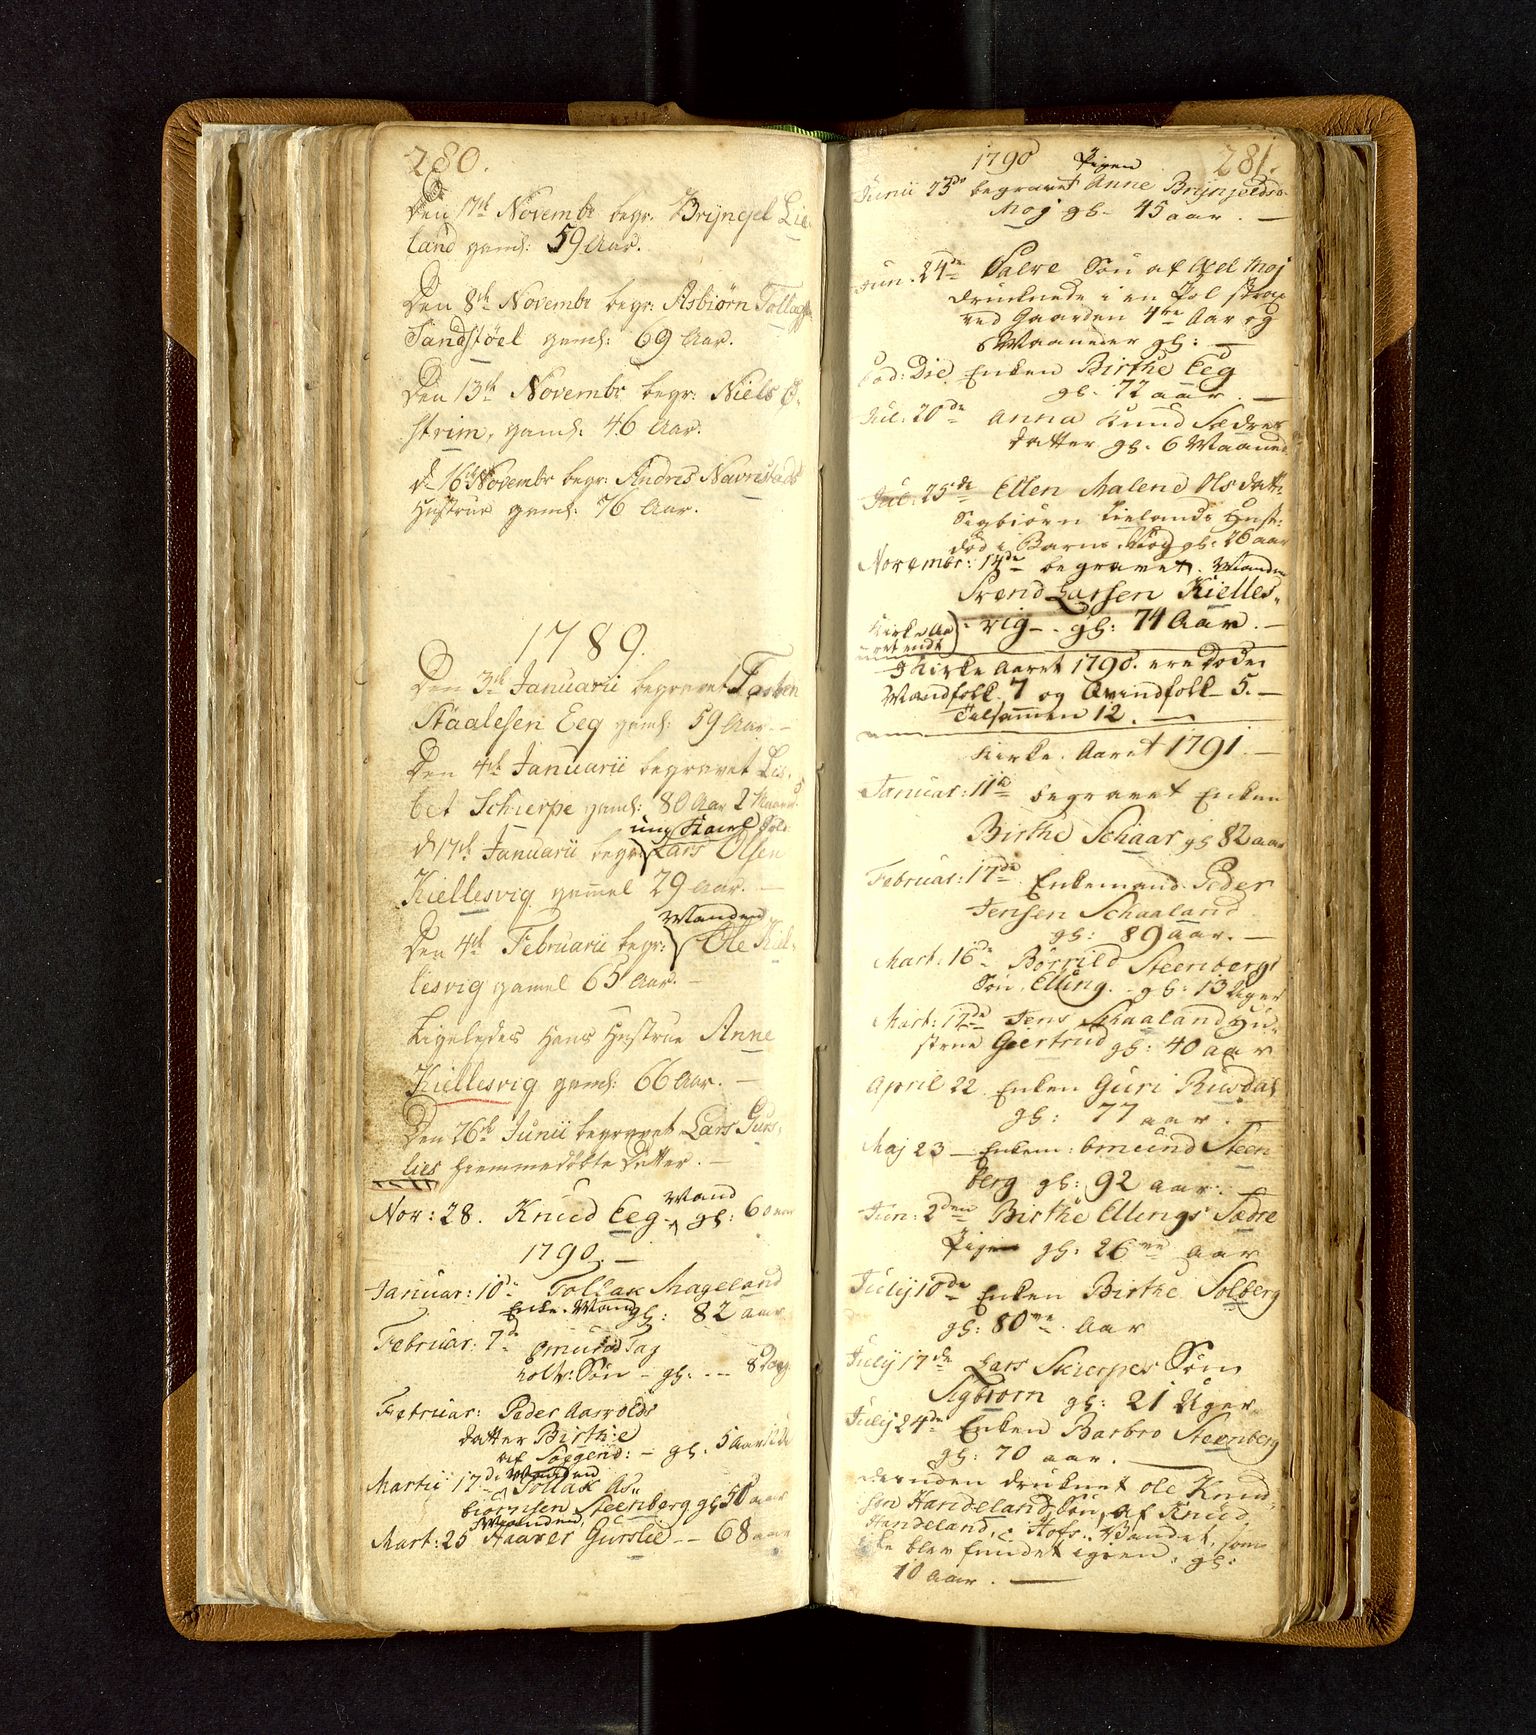 280.
Den 17th Novembr begr: Bryngel Lie-
land gaml: 59 Aar.
Den 8th Novembr begr: Asbiørn Tollags
Sandstøel gaml: 69 Aar.
Den 13th Novembr begr: Niels
strim, gaml: 46 Aar.
d 16th Novembr begr: Andres Navrestads
Hustrue gaml: 76 Aar.
1789.
Den 3th Januarii begravet Torben
Staalesen Eeg gaml: 59 Aar. -
Den 4th Januarii begravet Lis-
bet Schierpe gaml: 80 Aar 2 Maan
ung Karl
d 17th Januarii begr: Lars Olsen
Kiellesvig gammel 29 Aar. -
Manden
Den 4th Februarii begr: Ole Kiel-
lesvig gamel 65 Aar. -
Ligeledes hans Hustrue Anne
Kiellesvig gaml: 66 Aar. -
Den 26th Junii begravet Lars Gurs-
lies hiemmedøbte Datter. -
Mand
Nov: 28. Knud Eeg - gl: 60 aar
1790. -
Januar: 10d Tollak Mageland
Enke-Mand gl: 82 aar
Februar: 7d Omund Tag
holt: Søn - gl: -- 8 Dage
Februar: Peder Aarvolds
datter Birthe
af Soggend: - gl: 5 Aar
Manden
Martii 17d Tollak As-
biørnsen Steenberg gl 50 aar
Manden
Mart: 25 Haaver Gurslie -- 68 aar
1790 281.
Pigen
Junii 23de begravet Anne Brynjeldsd
Moj gl- 45 aar. -
Jun: 24de Salve Søn af Axel Moj
druknede i en Pøl strax
ved Gaarden 4re Aar og
6 Maaneder gl: -
Eod: Die Enken Birthe Eeg
gl. 72 aar. -
Jul: 20de Anna Knud Sædres
datter gl. 6 Maaned
Jul: 25de Ellen Malene Olsdatt:
Sigbiørn Lielands Hust:
død i Barns Nød gl: 26 aar
Novembr: 14de begravet. Manden
Svend Larsen Kielles-
rig -. gl: 74 Aar. -
Kirke Aa
ret endt
I Kirke Aaret 1790. ere døde
Mandfolk 7 og Qvindfolk 5. -
Tilsammen 12. -
Kirke-Aaret 1791. -
Januar: 11te begravet Enken
Birthe Schaar gl 82 aar
Februar: 17de Enkemand Peder
Jensen Schaaland
gl: 89 aar. -
Mart: 16de Børrild Steenbergs
Søn, Elling. - gl: 13 Uger
Mart: 17de Jens Schaaland Hu-
strue Geertrud gl: 40 aar
April 22 Enken Guri Rusdal
gl: 77 aar. -
Maj 23 - Enkem: Omund Steen
berg gl: 92 aar. -
Jun: 2den Birthe Ellings Sædre
Pige gl: 26ve aar
Julij 10de Enken Birthe Solberg
gl: 80ve Aar
Julij 17de Lars Skierpes Søn
Sigbiorn gl: 21 Uger
Julij 24de Enken Barbro Steenberg
gl: 70 aar.
desuden druknet Ole Knud-
sen Handeland, Søn af Knud
Handeland, i Hofs-Vandet, som
ike blev fundet igien, gl:
10 aar. -